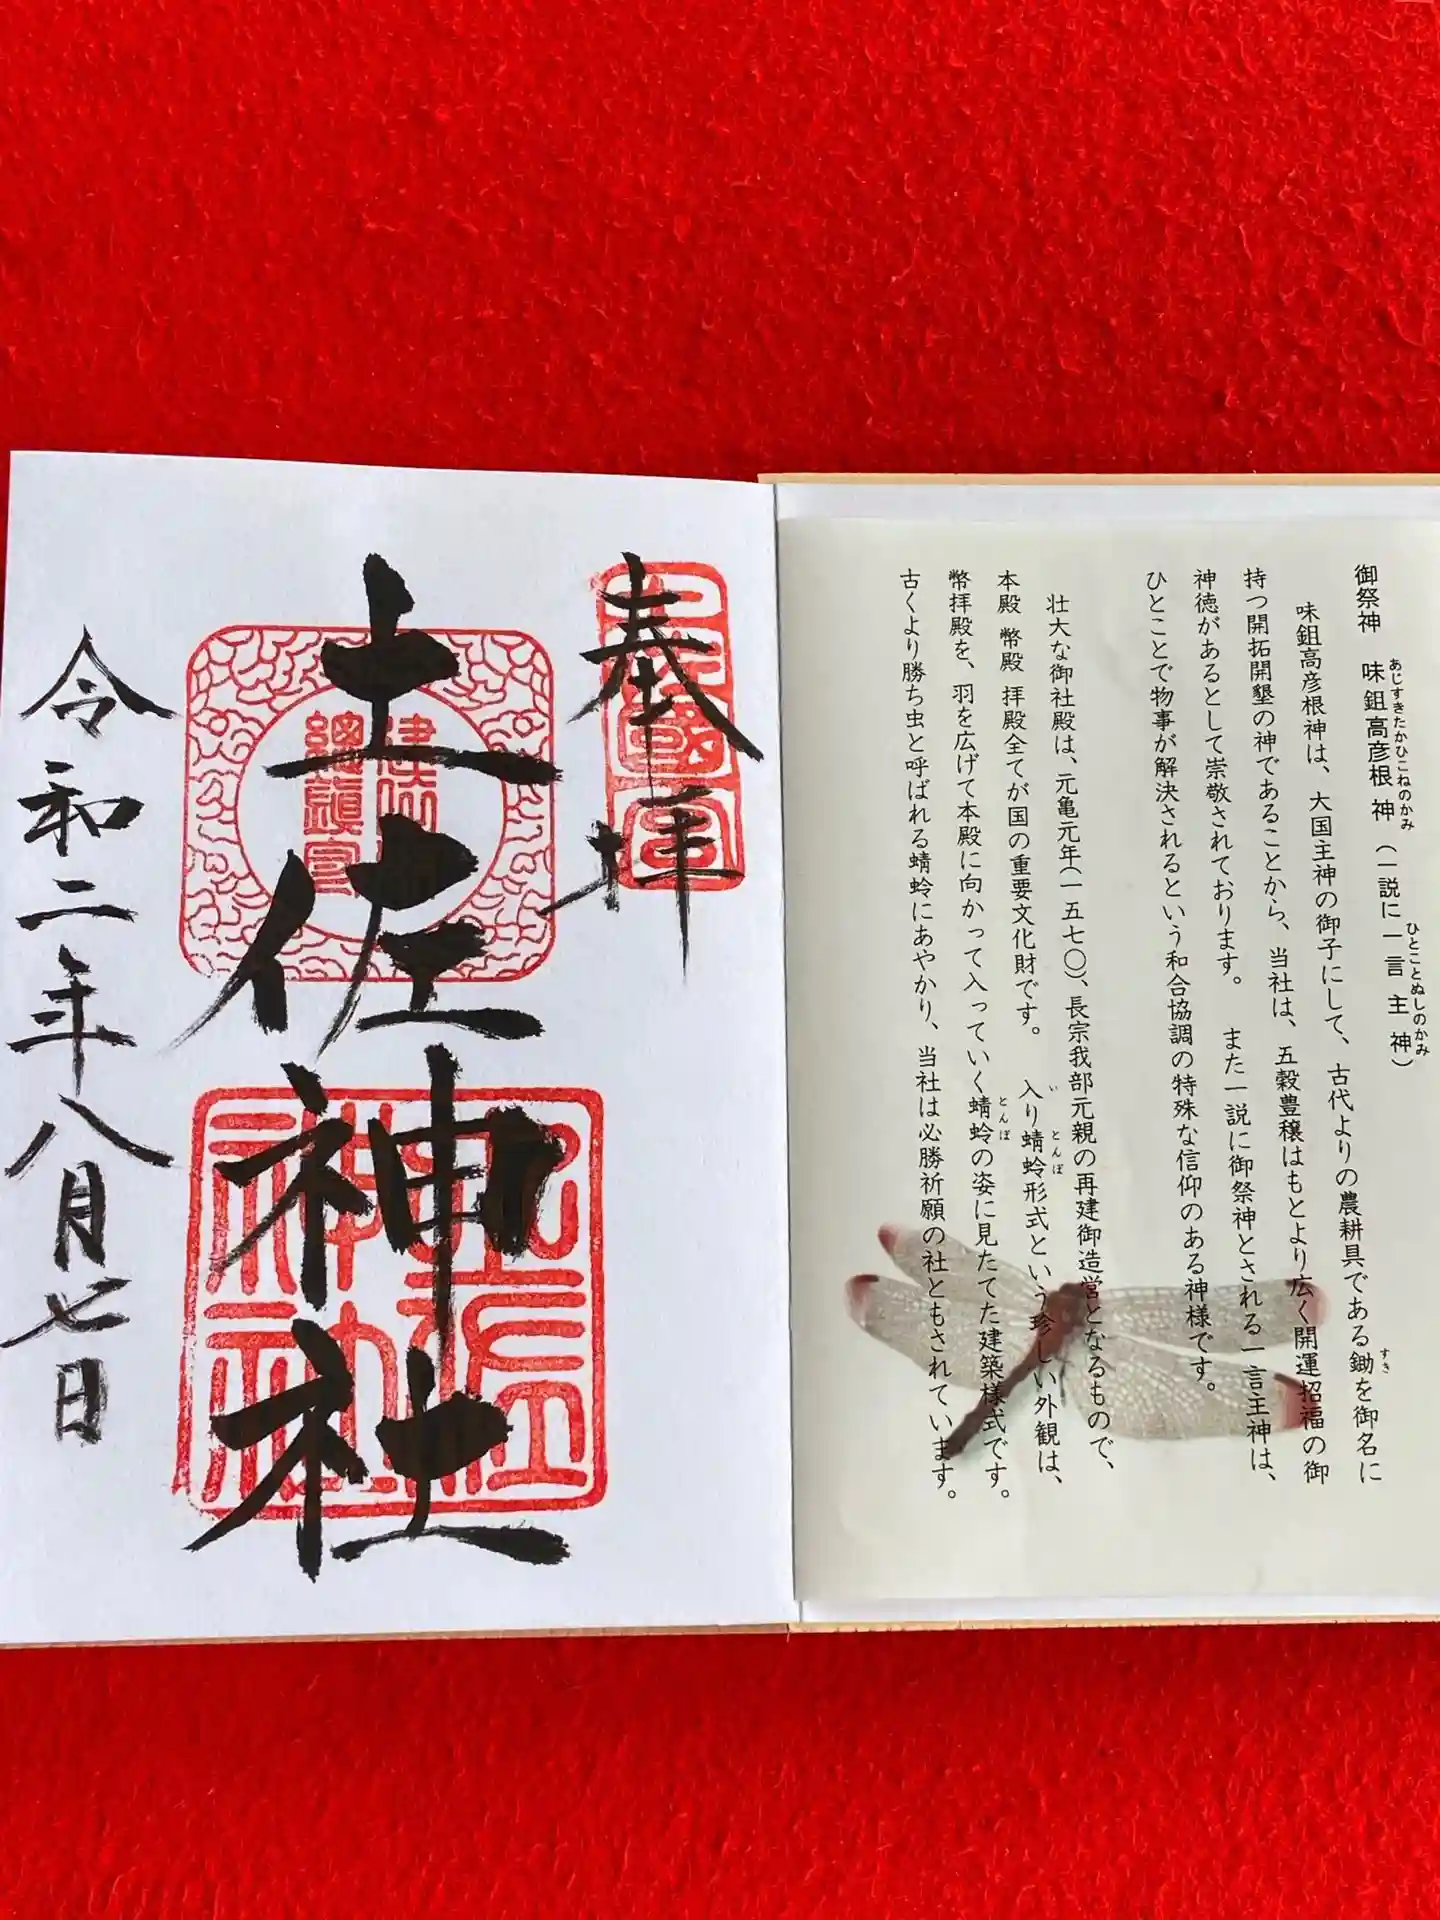 御祭神 味鉏高彦根神(一説に一言主神)
あじすきたかひこねのかみ
ひとことぬしのかみ
味鉏高彦根神は、大国主神の御子にして、古代よりの農耕具である鋤を御名に
すき
持つ開拓開墾の神であることから、当社は、五穀豊穣はもとより広く開運招福の御
神徳があるとして崇敬されております。 また一説に御祭神とされる一言主神は、
ひとことで物事が解決されるという和合協調の特殊な信仰のある神様です。
壮大な御社殿は、元亀元年(一五七〇)、長宗我部元親の再建御造営となるもので、
本殿 幣殿 拝殿全てが国の重要文化財です。 入り蜻蛉形式という珍しい外観は、
い とんぼ
幣拝殿を、羽を広げて本殿に向かって入っていく蜻蛉の姿に見たてた建築様式です。
とんぼ
古くより勝ち虫と呼ばれる蜻蛉にあやかり、当社は必勝祈願の社ともされています。
奉拝
土佐神社
令和二年八月七日
土佐
神社